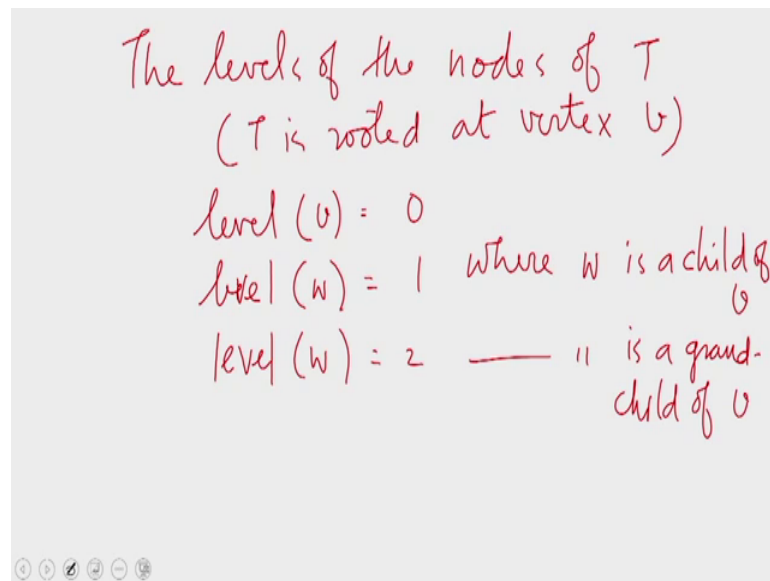 The levels of the nodes of T
(T is rooted at vertex v)
level (v) = 0
level (w) = 1 where w is a child of
v
level (w) = 2 —— " is a grand-
child of v